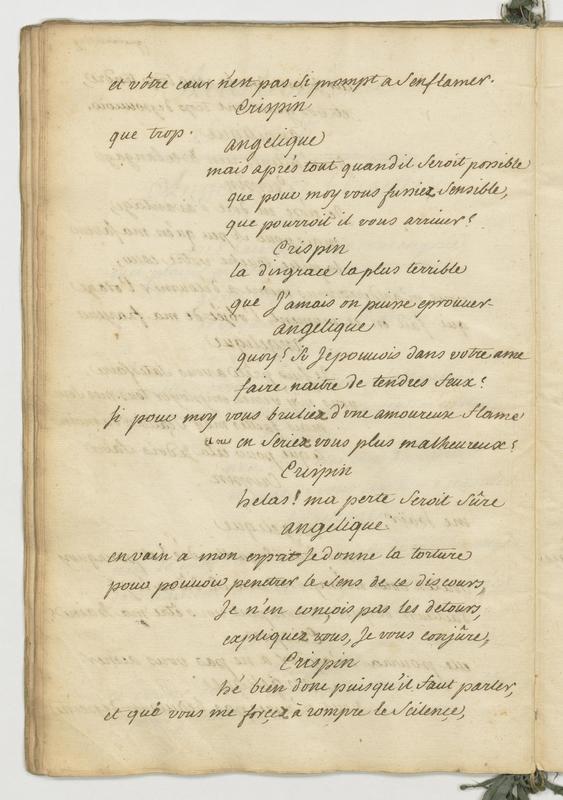 et vôtre cœur n'est pas si prompt a s'enflamer.
Crispin
que trop.
angelique
mais aprés tout quand il seroit possible
que pour moy vous fussiez sensible,
que pourroit il vous arriver?
Crispin
la disgrace la plus terrible
qué J'amais on puisse eprouver
angelique
quoy? si Je pouvois dans votre ame
faire naitre de tendres feux?
si pour moy vous bruliez d'une amoureuse flame
en seriez vous plus malheureux?
Crispin
helas! ma perte seroit sûre
angelique
en vain a mon esprit Je donne la torture
pour pouvoir penetrer le sens de ce discours,
Je n'en conçois pas les detours,
expliquez vous, Je vous conjûre,
Crispin
hé bien donc puisqu'il faut parler,
et qué vous me forcez à rompre le scilence,